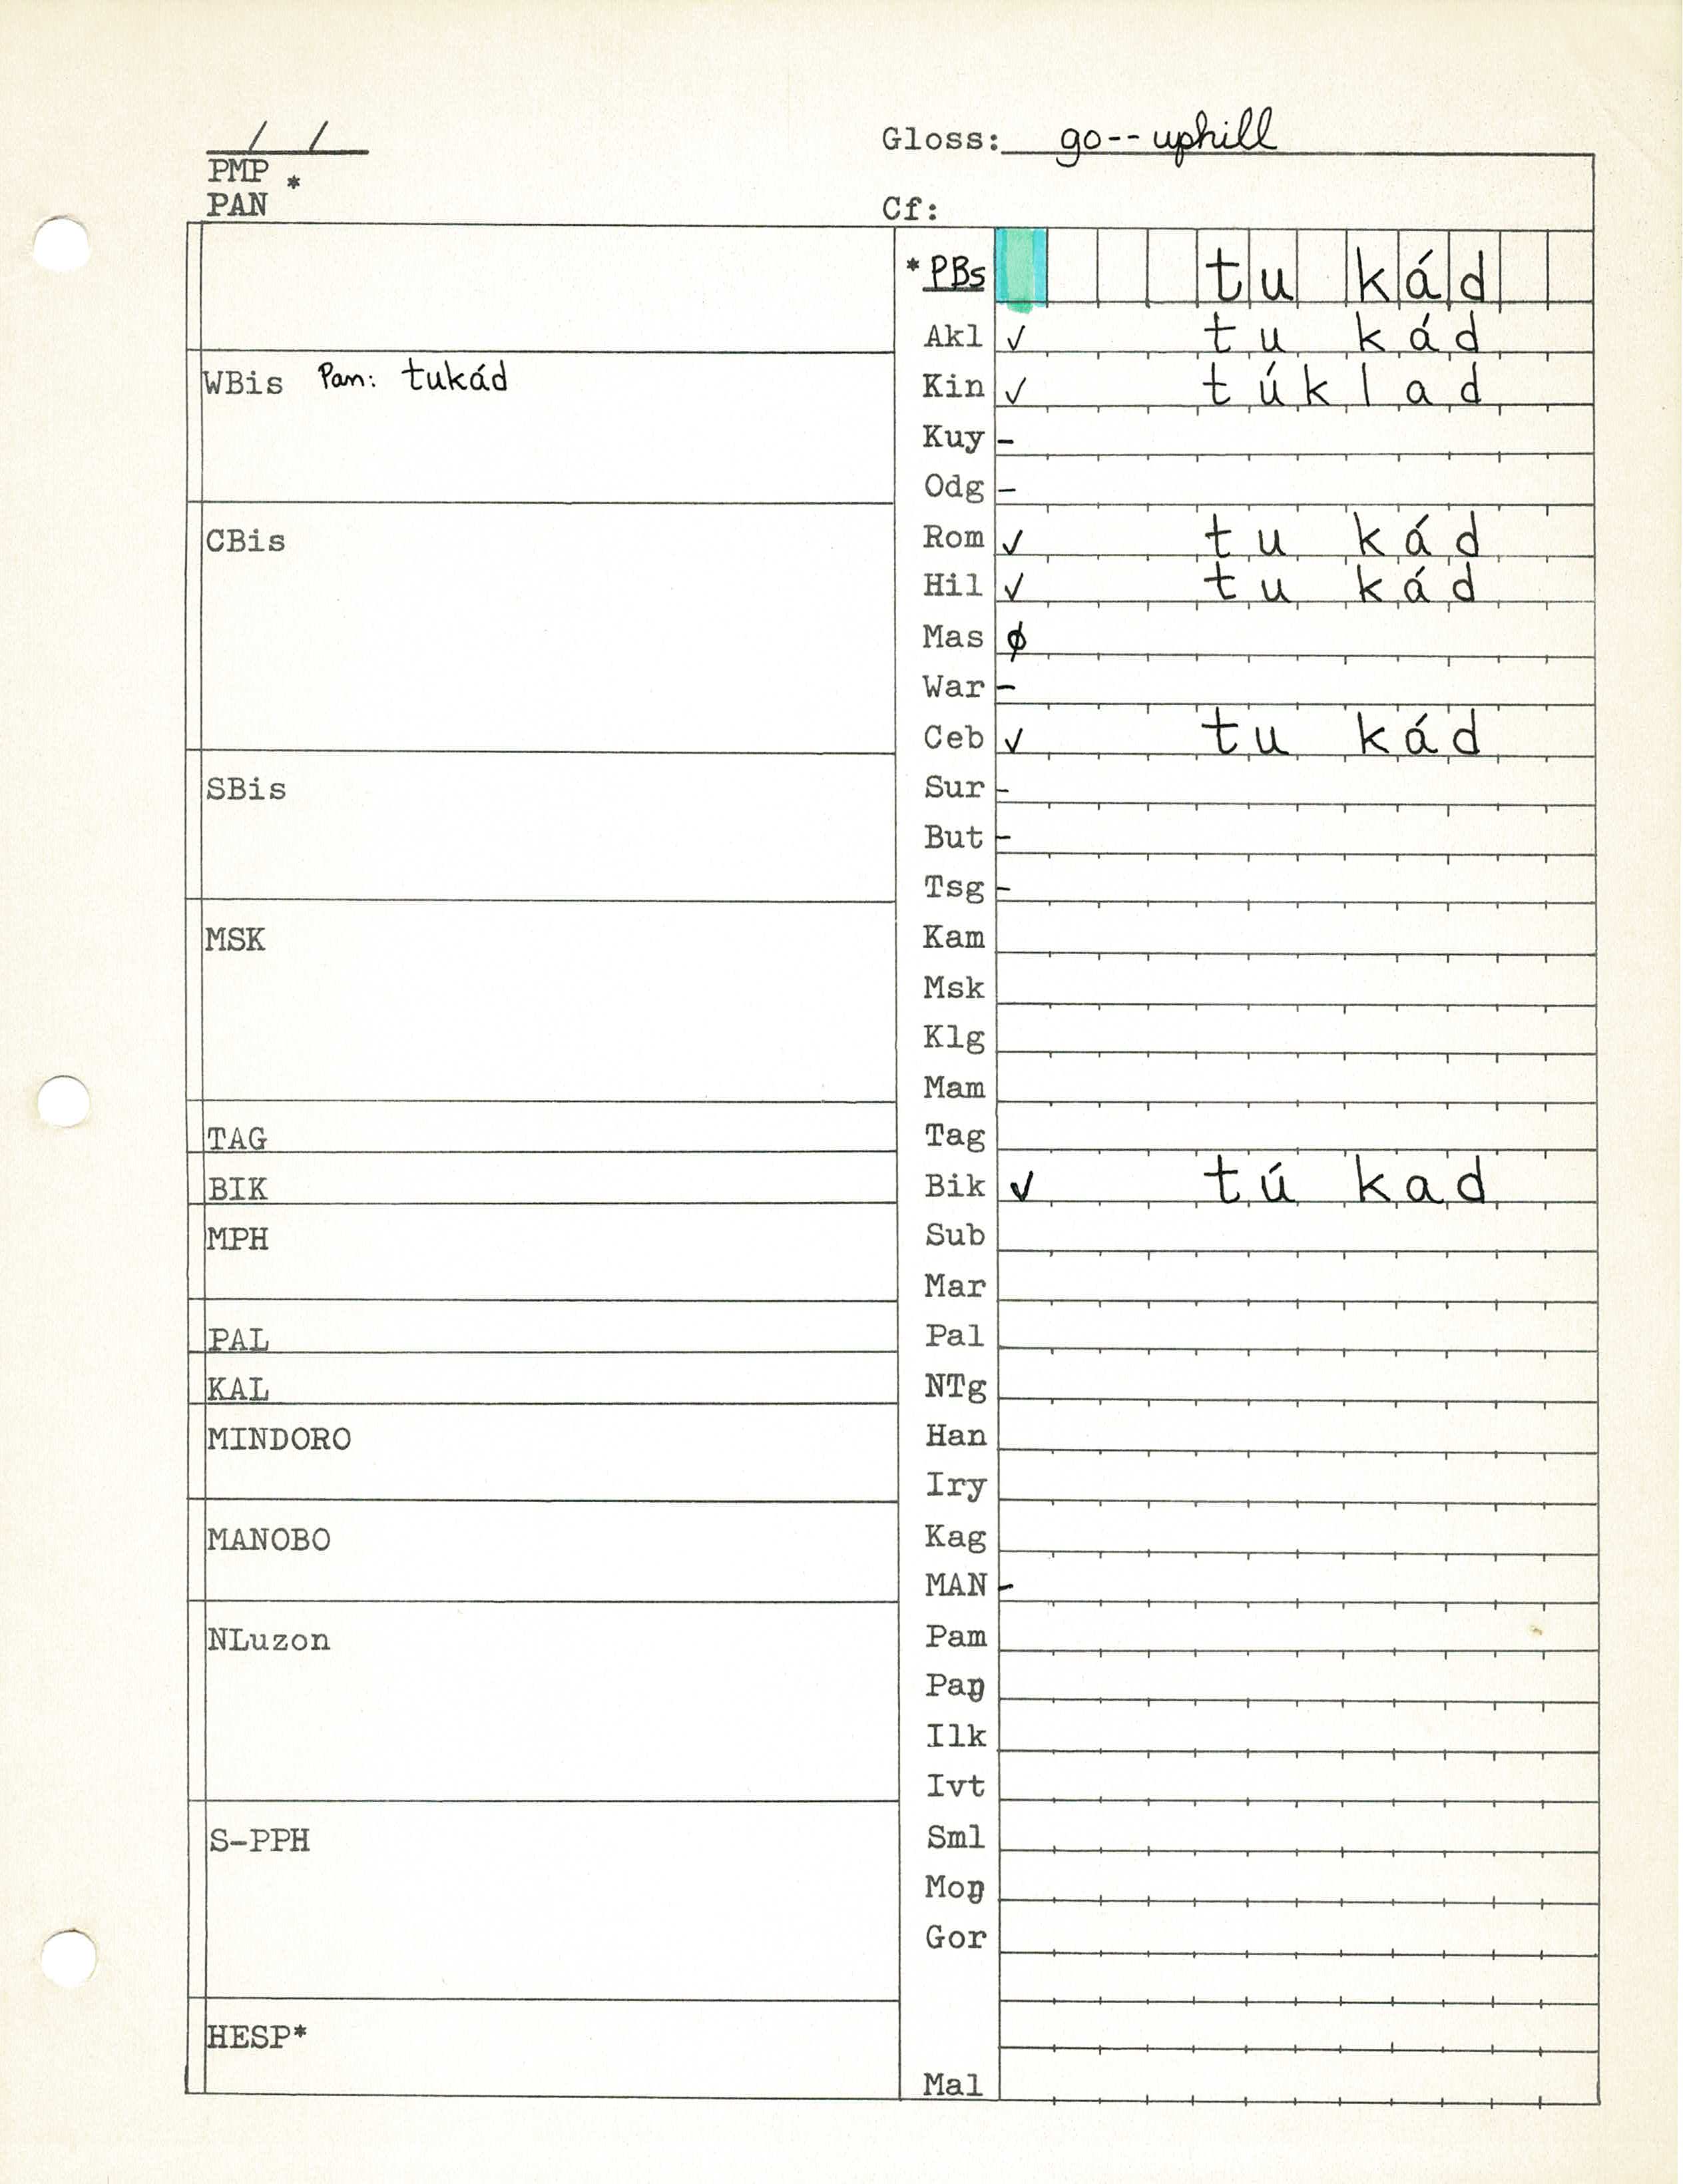 / /
Gloss: go--uphill
PMP *
PAN
Cf:
*PBs tu kád
Akl ✓ tu kád
WBis Pan: tukád
Kin ✓ túklad
Kuy -
Odg -
CBis
Rom ✓ tu kád
Hil ✓ tu kád
Mas ϕ
War -
Ceb ✓ tu kád
SBis
Sur -
But -
Tsg -
MSK
Kam
Msk
Klg
Mam
TAG
Tag
BIK
Bik ✓ tú kad
MPH
Sub
Mar
PAL
Pal
KAL
NTg
MINDORO
Han
Iry
MANOBO
Kag
MAN -
NLuzon
Pam
Paŋ
Ilk
Ivt
S-PPH
Sml
Moŋ
Gor
HESP*
Mal